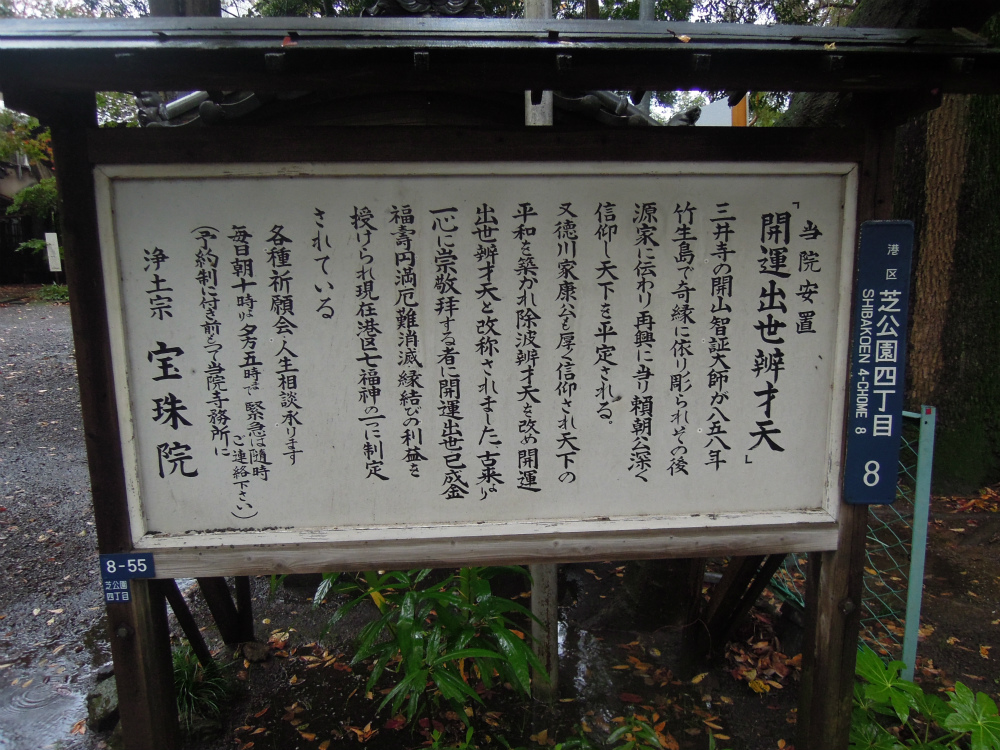 当院安置
「開運出世辨才天」
三井寺の開山智証大師が八五八年
竹生島で奇縁に依り彫られその後
源家に伝わり再興に当り頼朝公深く
信仰し天下を平定される。
又徳川家康公も厚く信仰され天下の
平和を築かれ除波辨才天を改め開運
出世辨才天と改称されました、古来より
一心に崇敬拜する者に開運出世巳成金
福壽円満厄難消滅縁結びの利益を
授けられ現在港区七福神の一つに制定
されている
各種祈願会・人生相談承ります
毎日朝十時より夕方五時まで 緊急は随時
ご連絡下さい)
(予約制に付き前もって当院寺務所に
浄土宗 宝珠院
港区
芝公園四丁目
SHIBAKOEN 4-CHOME 8
8
8-55
芝公園
四丁目